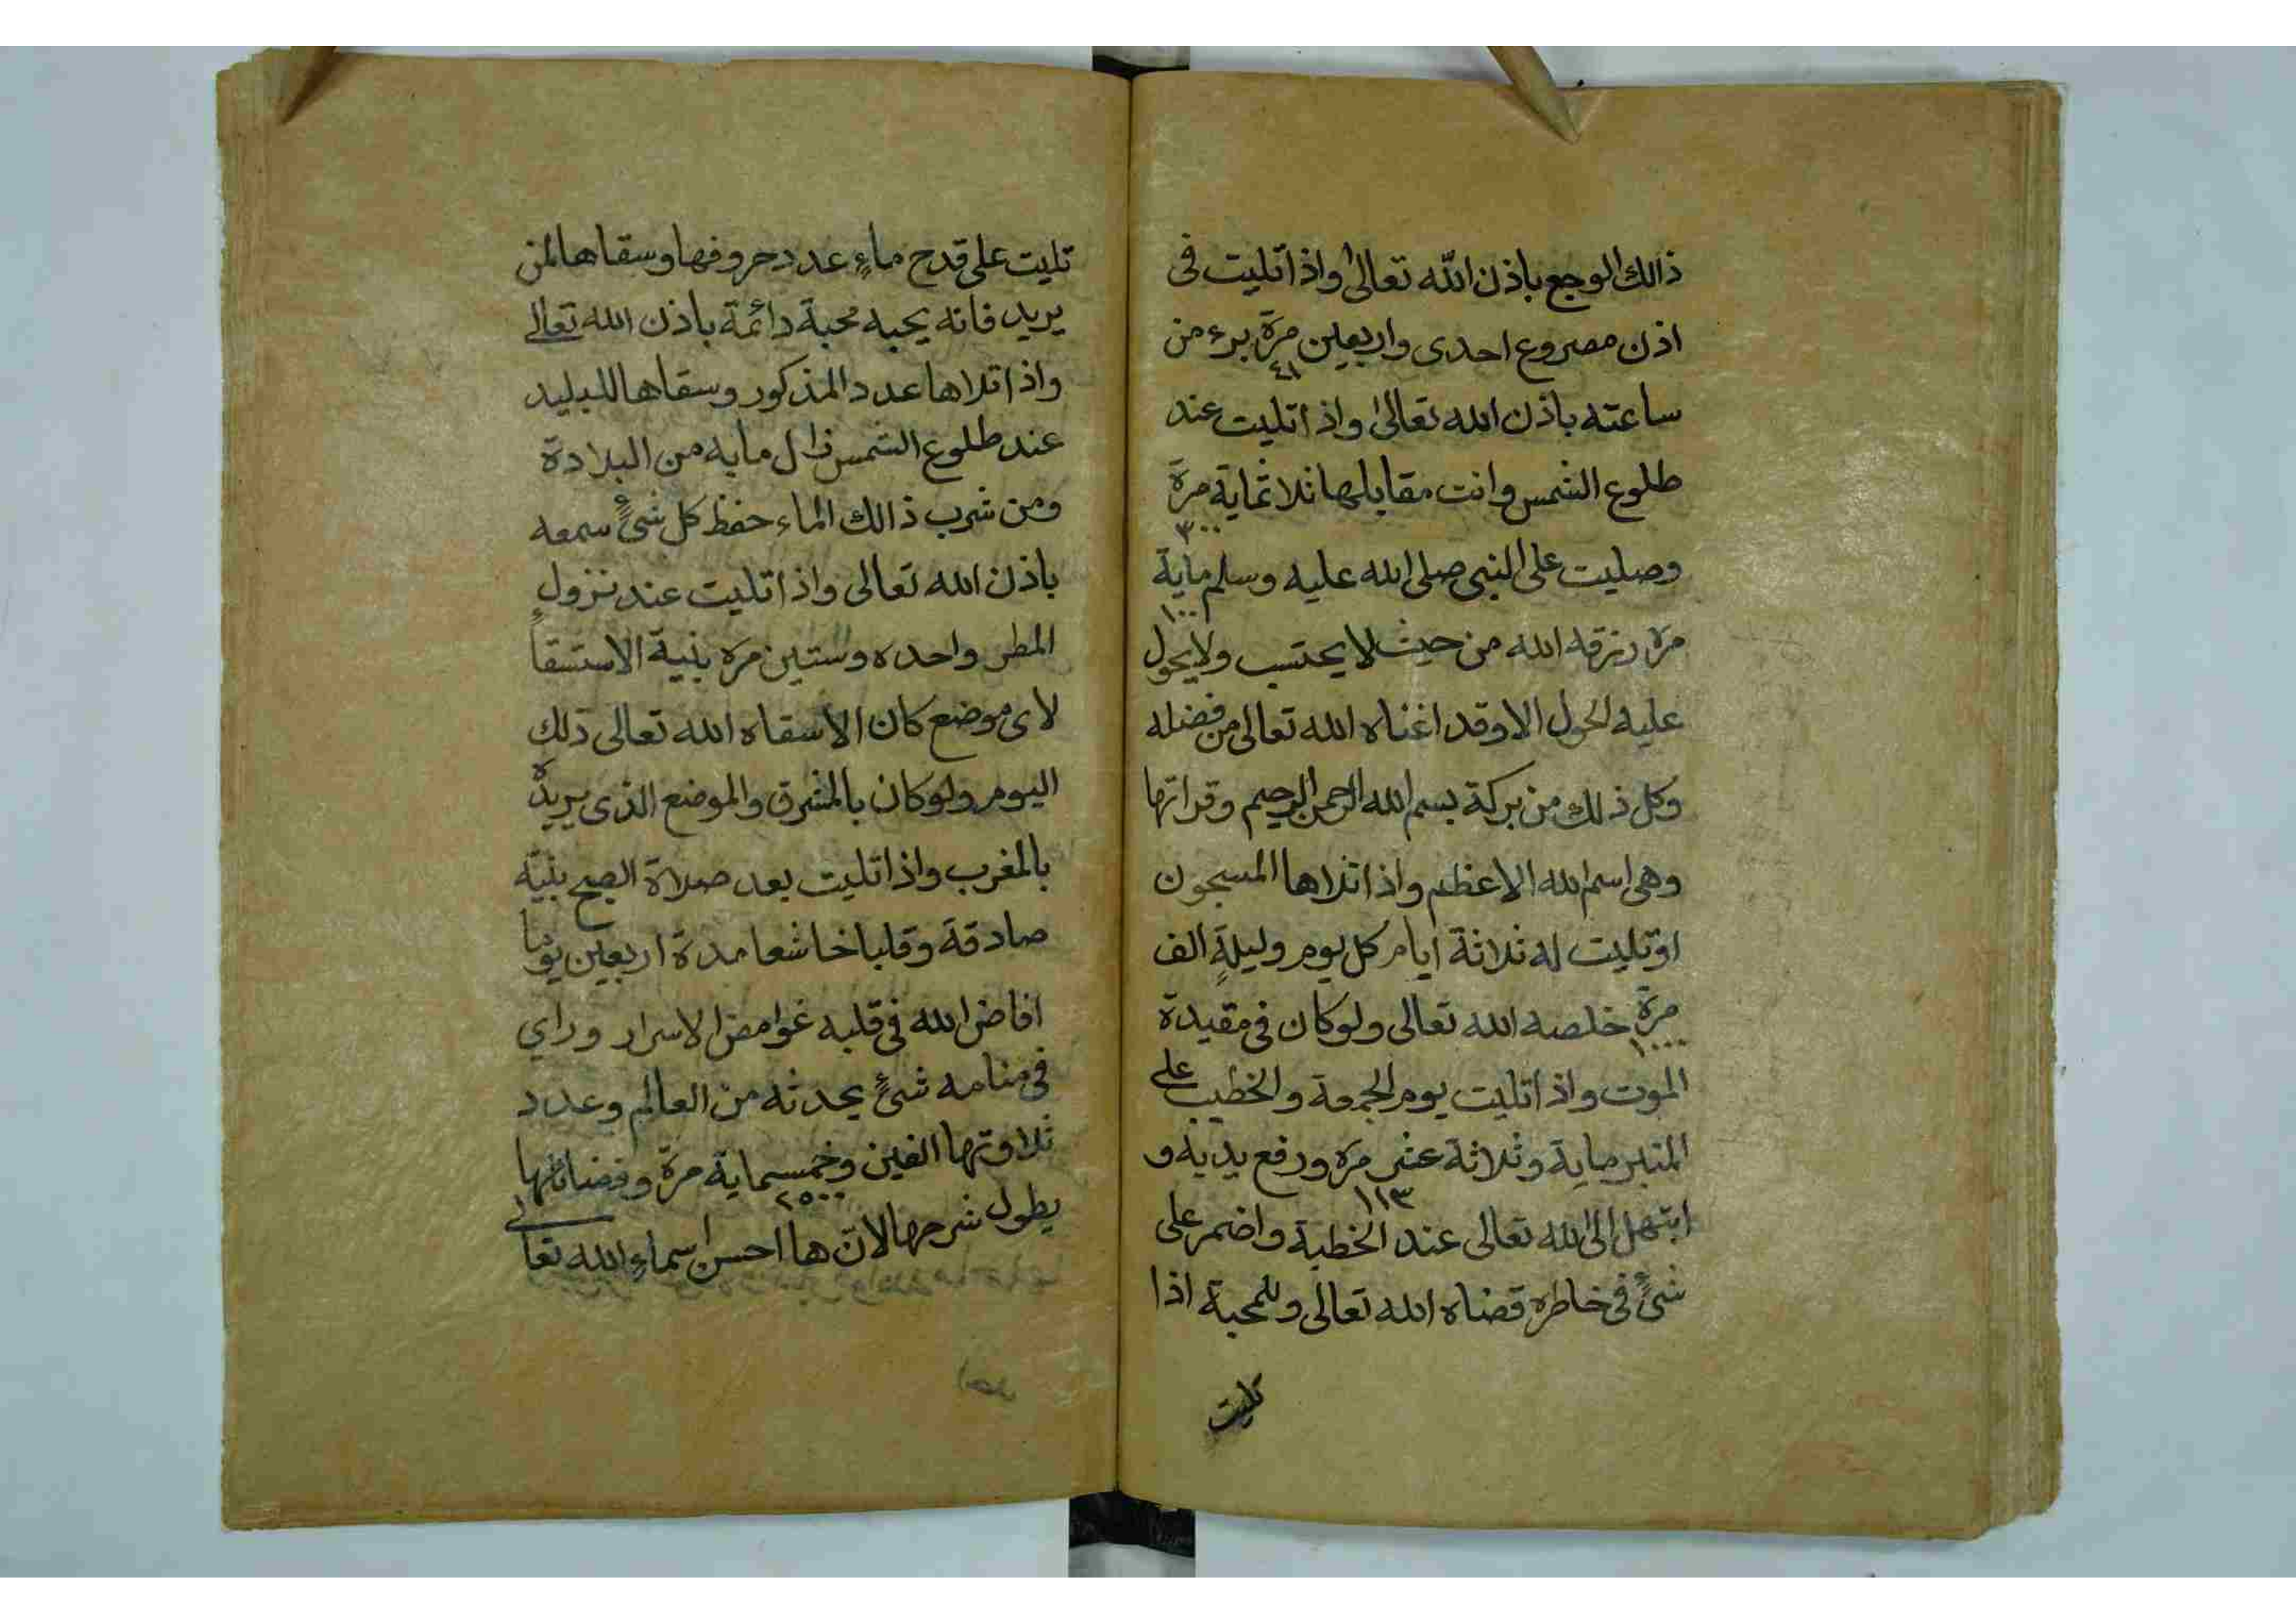 ذالك الوجع باذن الله تعالى واذا تليت فى
اذن مصروع احدى واربعين مرة برء من
٤١
ساعته باذن الله تعالى واذا تليت عند
طلوع الشمس وانت مقابلها ثلاثماية مرة
٣٠٠
وصليت على النبى صلى الله عليه وسلم ماية
١٠٠
مرة رزقه الله من حيث لا يحتسب ولا يحول
عليه الحول الا وقد اغناه الله تعالى من فضله
وكل ذلك من بركة بسم الله الرحمن الرحيم وقراتها
وهى اسم الله الاعظم واذا تلاها المسجون
او تليت له ثلاثة ايام كل يوم وليلةٍ الف
مرةٍ خلصه الله تعالى ولو كان فى مقيدة
١٠٠٠
الموت واذا تليت يوم الجمعة والخطيب على
المنبر ماية وثلاثة عشر مرة ورفع يديه و
١١٣
ابتهل الى الله تعالى عند الخطبة واضمر على
شئٍ فى خاطره قضاه الله تعالى وللمحبة اذا
تليت
تليت على قدح ماءٍ عدد حروفها وسقاها لمن
يريد فانه يحبه محبة دائمة باذن الله تعالى
واذا تلاها عدد المذكور وسقاها للبليد
عند طلوع الشمس زال ما به من البلادة
ومن شرب ذالك الماء حفظ كل شئٍ سمعه
باذن الله تعالى واذا تليت عند نزولٍ
المطر واحده وستين مرة بنية الاستسقا
لاى موضع كان الا سقاه الله تعالى ذلك
اليوم ولو كان بالمشرق والموضع الذى يريده
بالمغرب واذا تليت بعد صلاة الصبح بنية
صادقة وقلبا خاشعا مدة اربعين يوما
افاض الله فى قلبه غوامض الاسرار وراي
فى منامه شئٍ يحدثه من العالم وعدد
ثلاوتها الفين وخمسماية مرة وفضائلها
٢٥٠٠
يطول شرحها لانّ ها احسن اسماءِ الله تعالى